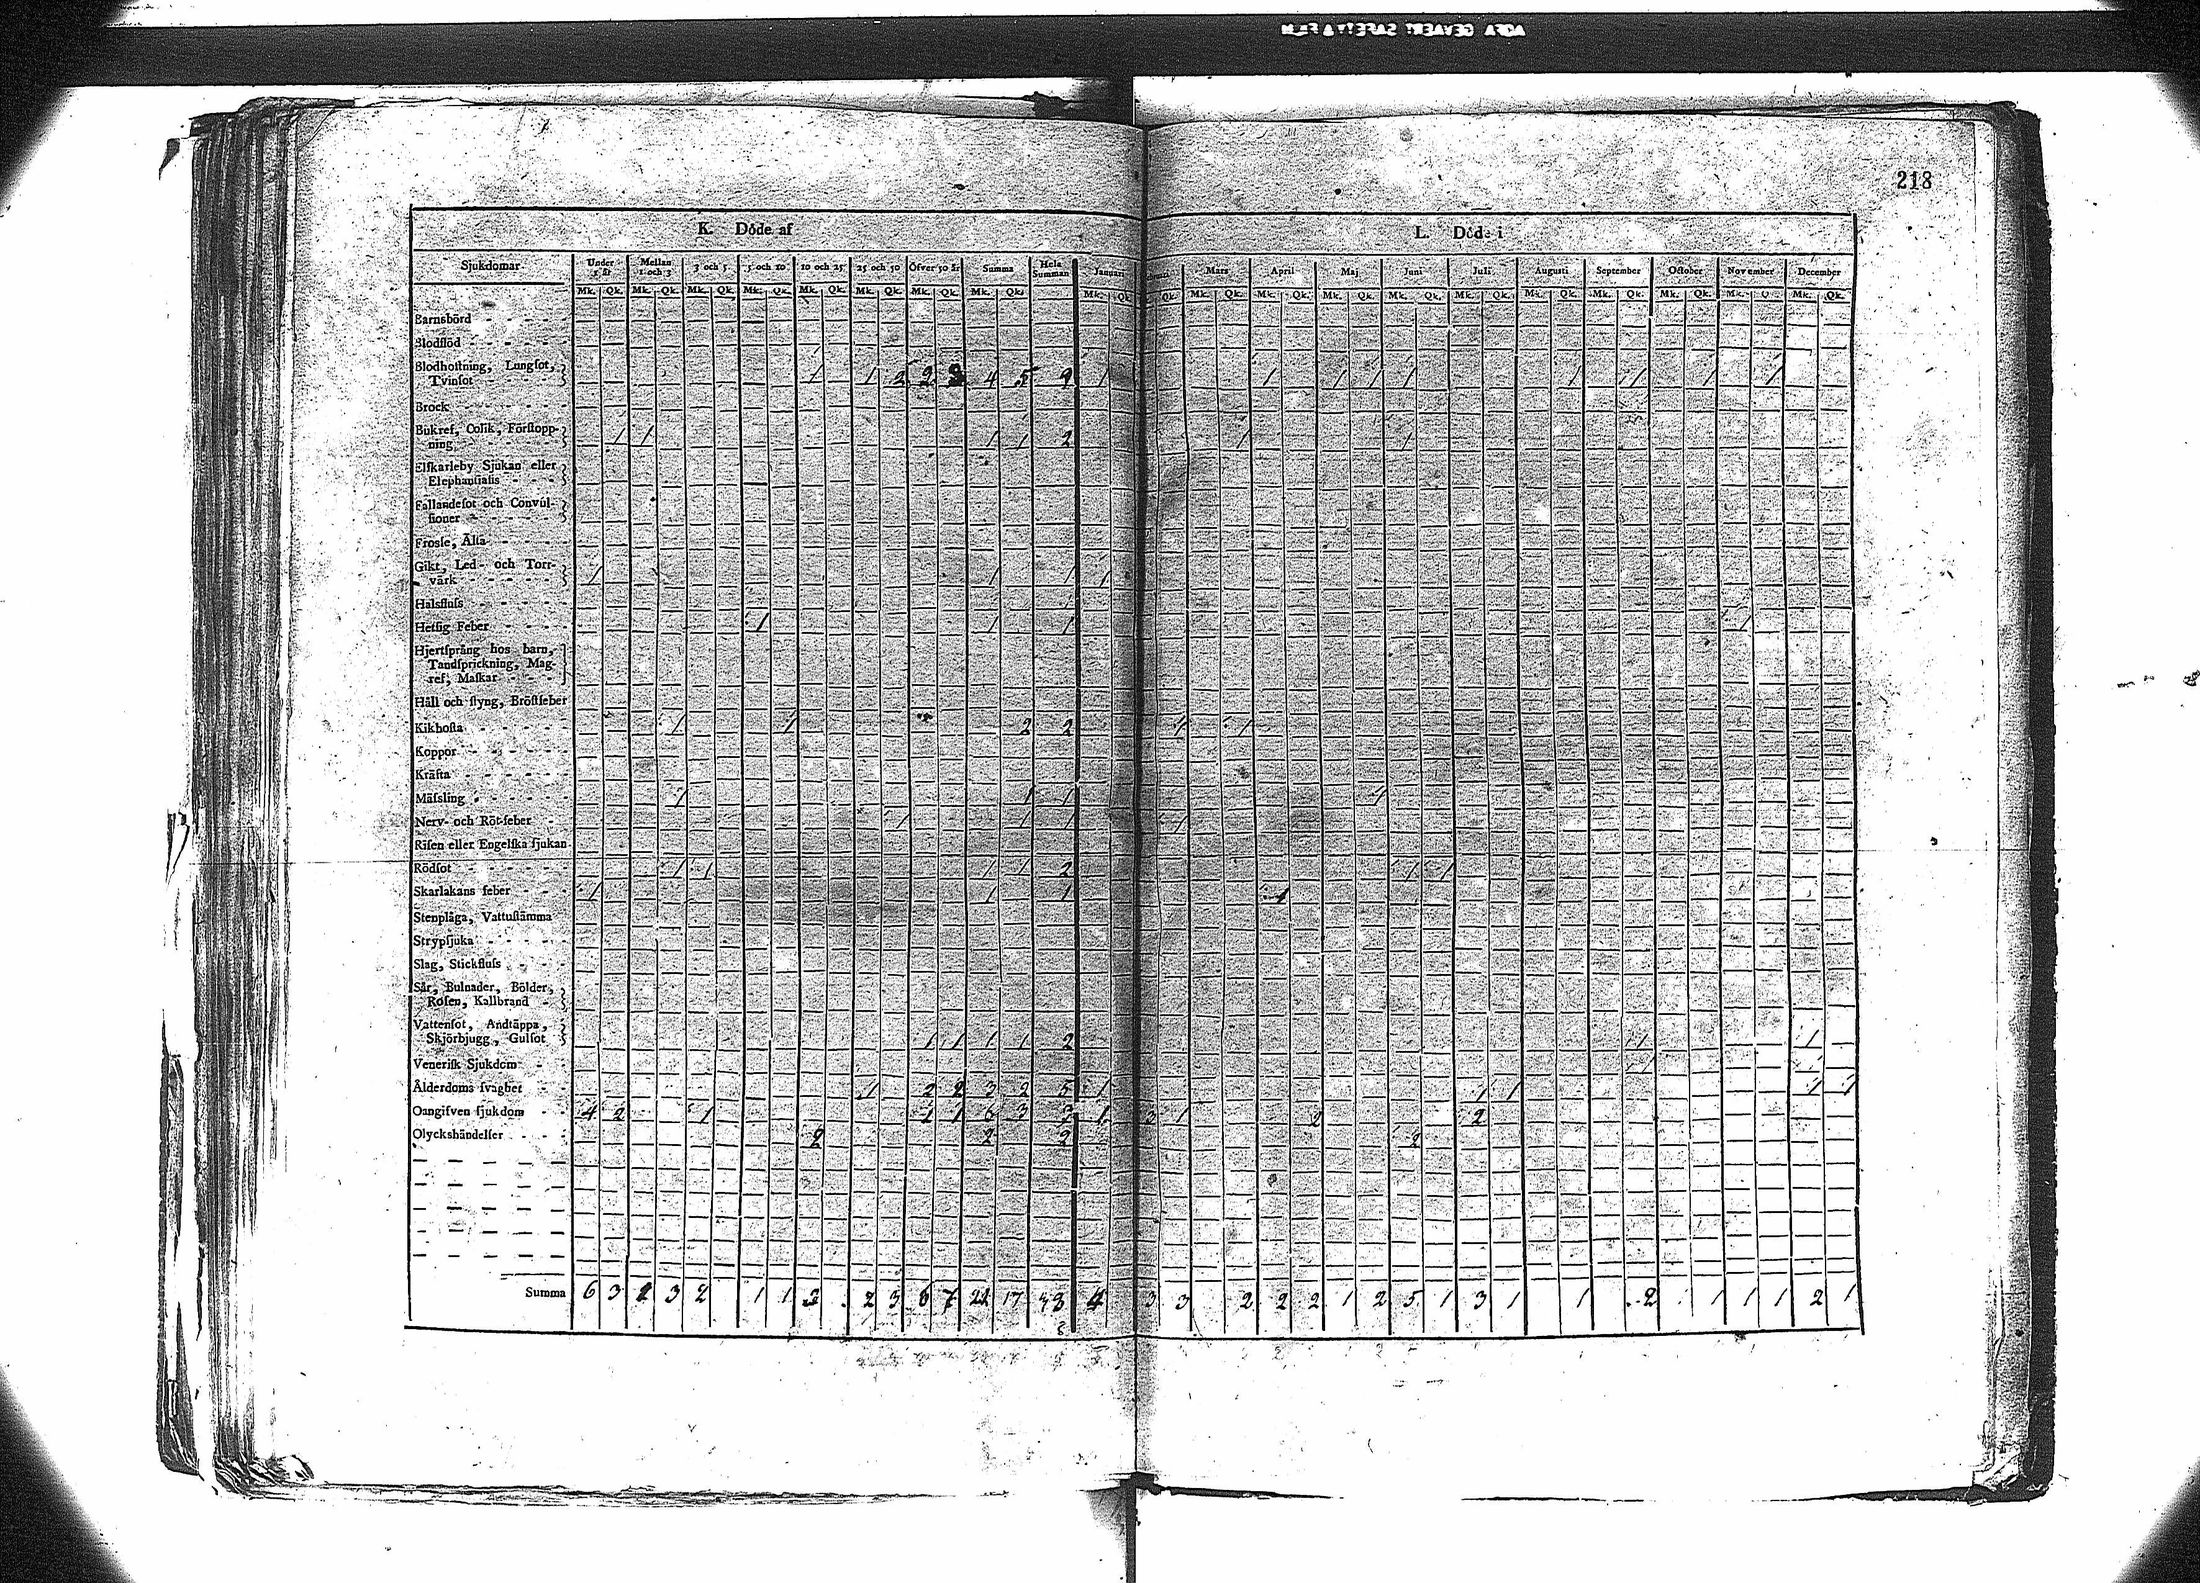 218
K. Döde af
L. Döde i
Sjukdomar Under 1 år Mellan 1 och 3 3 och 5 5 och 10 10 och 25 25 och 50 Öfver 50 år Summa Hela Summan Januari Mars April Maj Juni Juli Augusti September October November December
Mk. Qk. Mk. Qk. Mk. Qk. Mk. Qk. Mk. Qk. Mk. Qk. Mk. Qk. Mk. Qk. Mk. Qk. Mk. Qk. Mk. Qk. Mk. Qk. Mk. Qk. Mk. Qk. Mk. Qk. Mk. Qk. Mk. Qk. Mk. Qk. Mk. Qk.
Barnsbörd
Blodflöd
Blodhoſtning, Lungſot,
Tvinſot 1 1 2 2 3 4 5 9 1 1 1 1 1 1 1 1 1
Brock
Bukref, Colik, Förſtopp-
ning 1 1 1 1 2 1 1
Elſkarleby Sjukan eller
Elephantiaſis
Fallandeſot och Convul-
ſioner
Froſſe, Älta
Gikt, Led- och Torr-
värk 1 1 1 1
Halsfluſs
Hetſig Feber 1 1 1 1
Hjertſprång hos barn,
Tandſprickning, Mag-
ref, Maſkar
Håll och ſtyng, Bröſtfeber
Kikhoſta 1 1 2 2 1 1
Koppor
Kräfta
Mäſsling 1 1 1 1
Nerv- och Röt-feber 1 1 1 1
Riſen eller Engelſka ſjukan
Rödſot 1 1 1 1 2 1 1
Skarlakans feber 1 1 1 1
Stenplåga, Vattuſtämma
Strypſjuka
Slag, Stickfluſs
Sår, Bulnader, Bölder,
Roſen, Kallbrand
Vattenſot, Andtäppa,
Skjörbjugg, Gulſot 1 1 1 1 2 1 1
Veneriſk Sjukdom
Ålderdoms ſvaghet 1 2 2 3 2 5 1 1 1 1 1
Oangifven ſjukdom 4 2 1 1 1 6 3 1 3 1 2 2
Olyckshändelſer 2 2 2 2
Summa 6 3 1 3 2 1 1 2 2 3 6 7 21 17 38 4 3 3 2 2 2 1 2 5 1 3 1 1 2 1 1 1 2 1